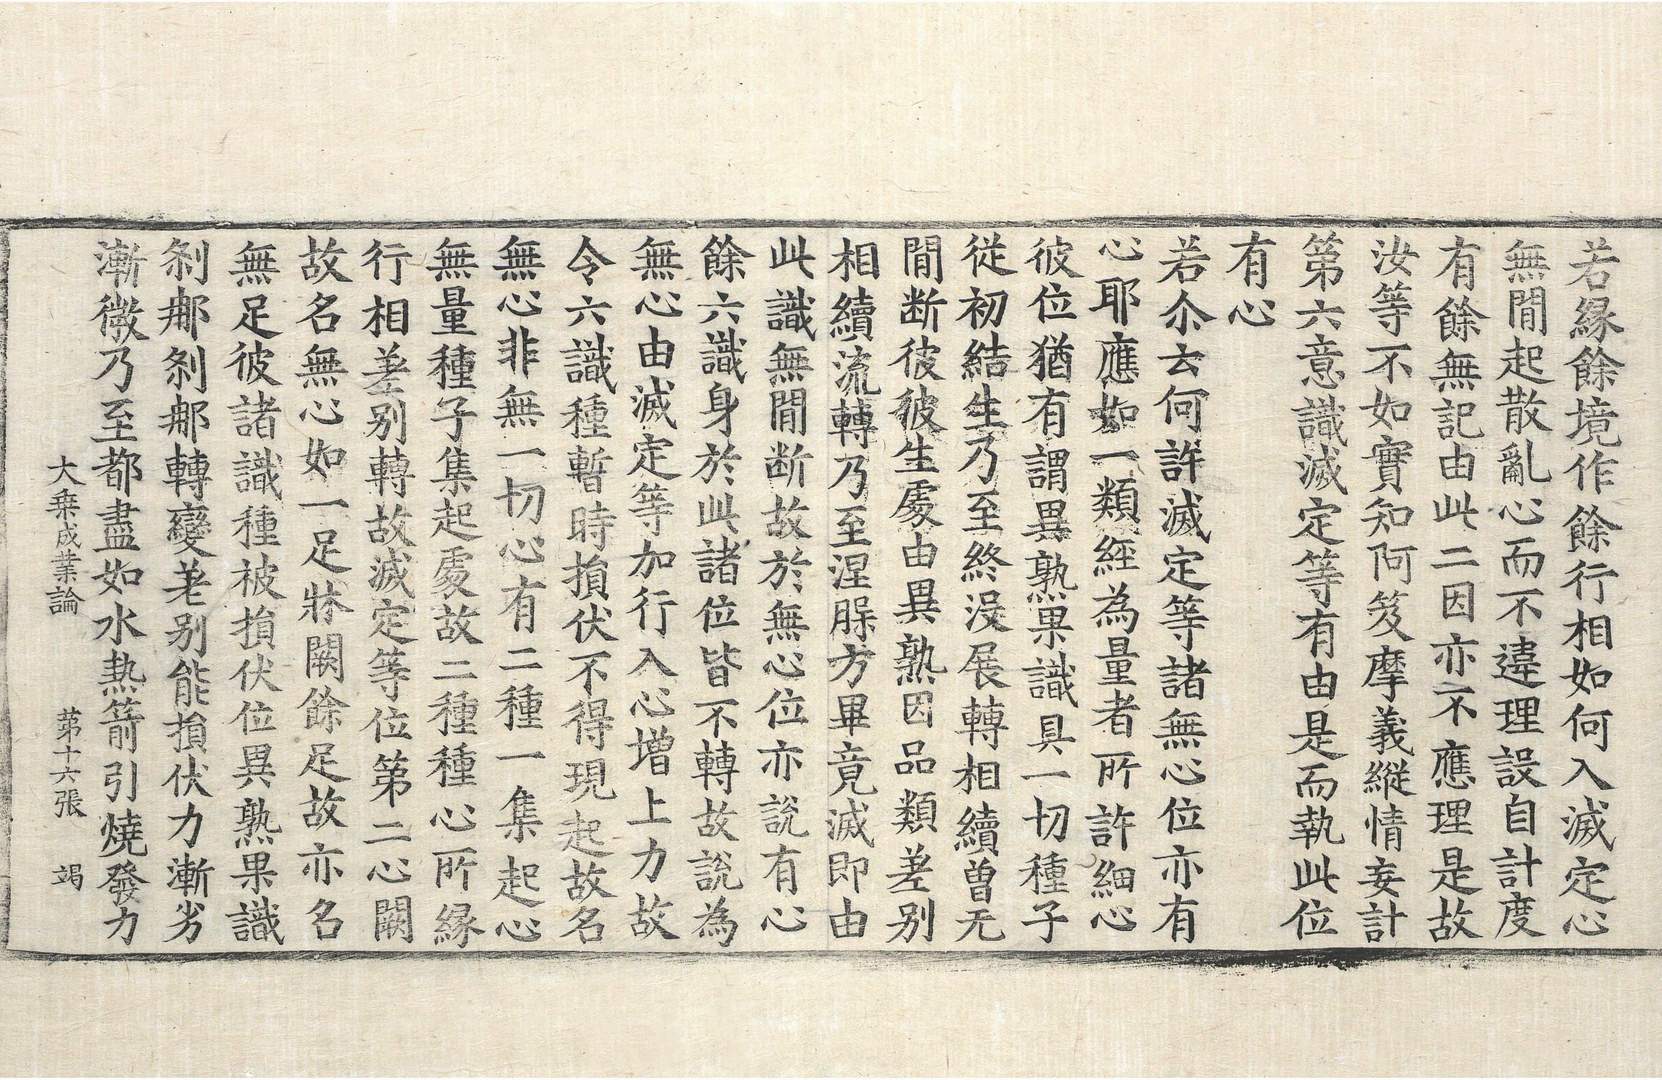 若緣餘境作餘行相如何入滅定心
無閒起散亂心而不違理設自計度
有餘無記由此二因亦不應理是故
汝等不如實知阿笈摩義縱情妄計
第六意識滅定等有由是而執此位
有心
若尒云何許滅定等諸無心位亦有
心耶應如一類經為量者所許細心
彼位猶有謂異熟果識具一切種子
從初結生乃至終沒展轉相續曾无
閒斷彼彼生處由異熟因品類差別
相續流轉乃至涅脲方畢竟滅即由
此識無閒斷故於無心位亦說有心
餘六識身於此諸位皆不轉故說為
無心由滅定等加行入心增上力故
令六識種暫時損伏不得現起故名
無心非無一切心有二種一集起心
無量種子集起處故二種種心所緣
行相差別轉故滅定等位第二心闕
故名無心如一足牀闕餘足故亦名
無足彼諸識種被損伏位異熟果識
剎那剎那轉變差別能損伏力漸劣
漸微乃至都盡如水熱箭引燒發力
大乘成業論 第十六張 竭